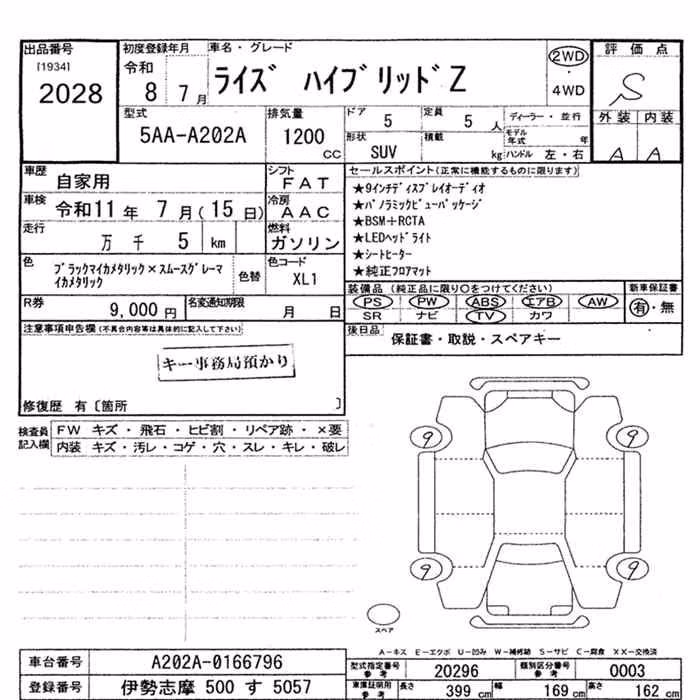 出品番号
[1934]
2028
初度登録年月
令和 8 7 月
車名・グレード
ライズ ハイブリッドZ
2WD
・
4WD
評価点
S
外装 内装
A A
型式
5AA-A202A
排気量
1200 CC
ドア
5
定員
5 人
形状
SUV
積載
kg
ディーラー・並行
モデル年式 年
ハンドル 左・右
車歴
自家用
シフト
FAT
車検
令和11年 7月(15日)
冷房
AAC
走行
万 千 5 km
燃料
ガソリン
色
ブラックマイカメタリック×スムースグレーマイカメタリック
色替
色コード
XL1
R券
9,000 円
名変通知期限
月 日
セールスポイント(正常に機能するものに限ります)
★9インチディスプレイオーディオ
★パノラミックビューパッケージ
★BSM+RCTA
★LEDヘッドライト
★シートヒーター
★純正フロアマット
装備品 (純正品に限り○をつけてください)
PS PW ABS エアB AW
SR ナビ TV カワ
新車保証書
有・無
後日品
保証書・取説・スペアキー
注意事項申告欄(不具合内容等は具体的に記入して下さい)
キー事務局預かり
修復歴 有〔箇所 〕
検査員記入欄
FW キズ・飛石・ヒビ割・リペア跡・×要
内装 キズ・汚レ・コゲ・穴・スレ・キレ・破レ
9 9
9 9
スペア
A-キス E-エクボ U-凹み W-補修跡 S-サビ C-腐食 XX-交換済
車台番号
A202A-0166796
登録番号
伊勢志摩 500 す 5057
型式指定番号 参考
20296
類別区分番号 参考
0003
車庫証明用 参考
長さ 399 cm
幅 169 cm
高さ 162 cm